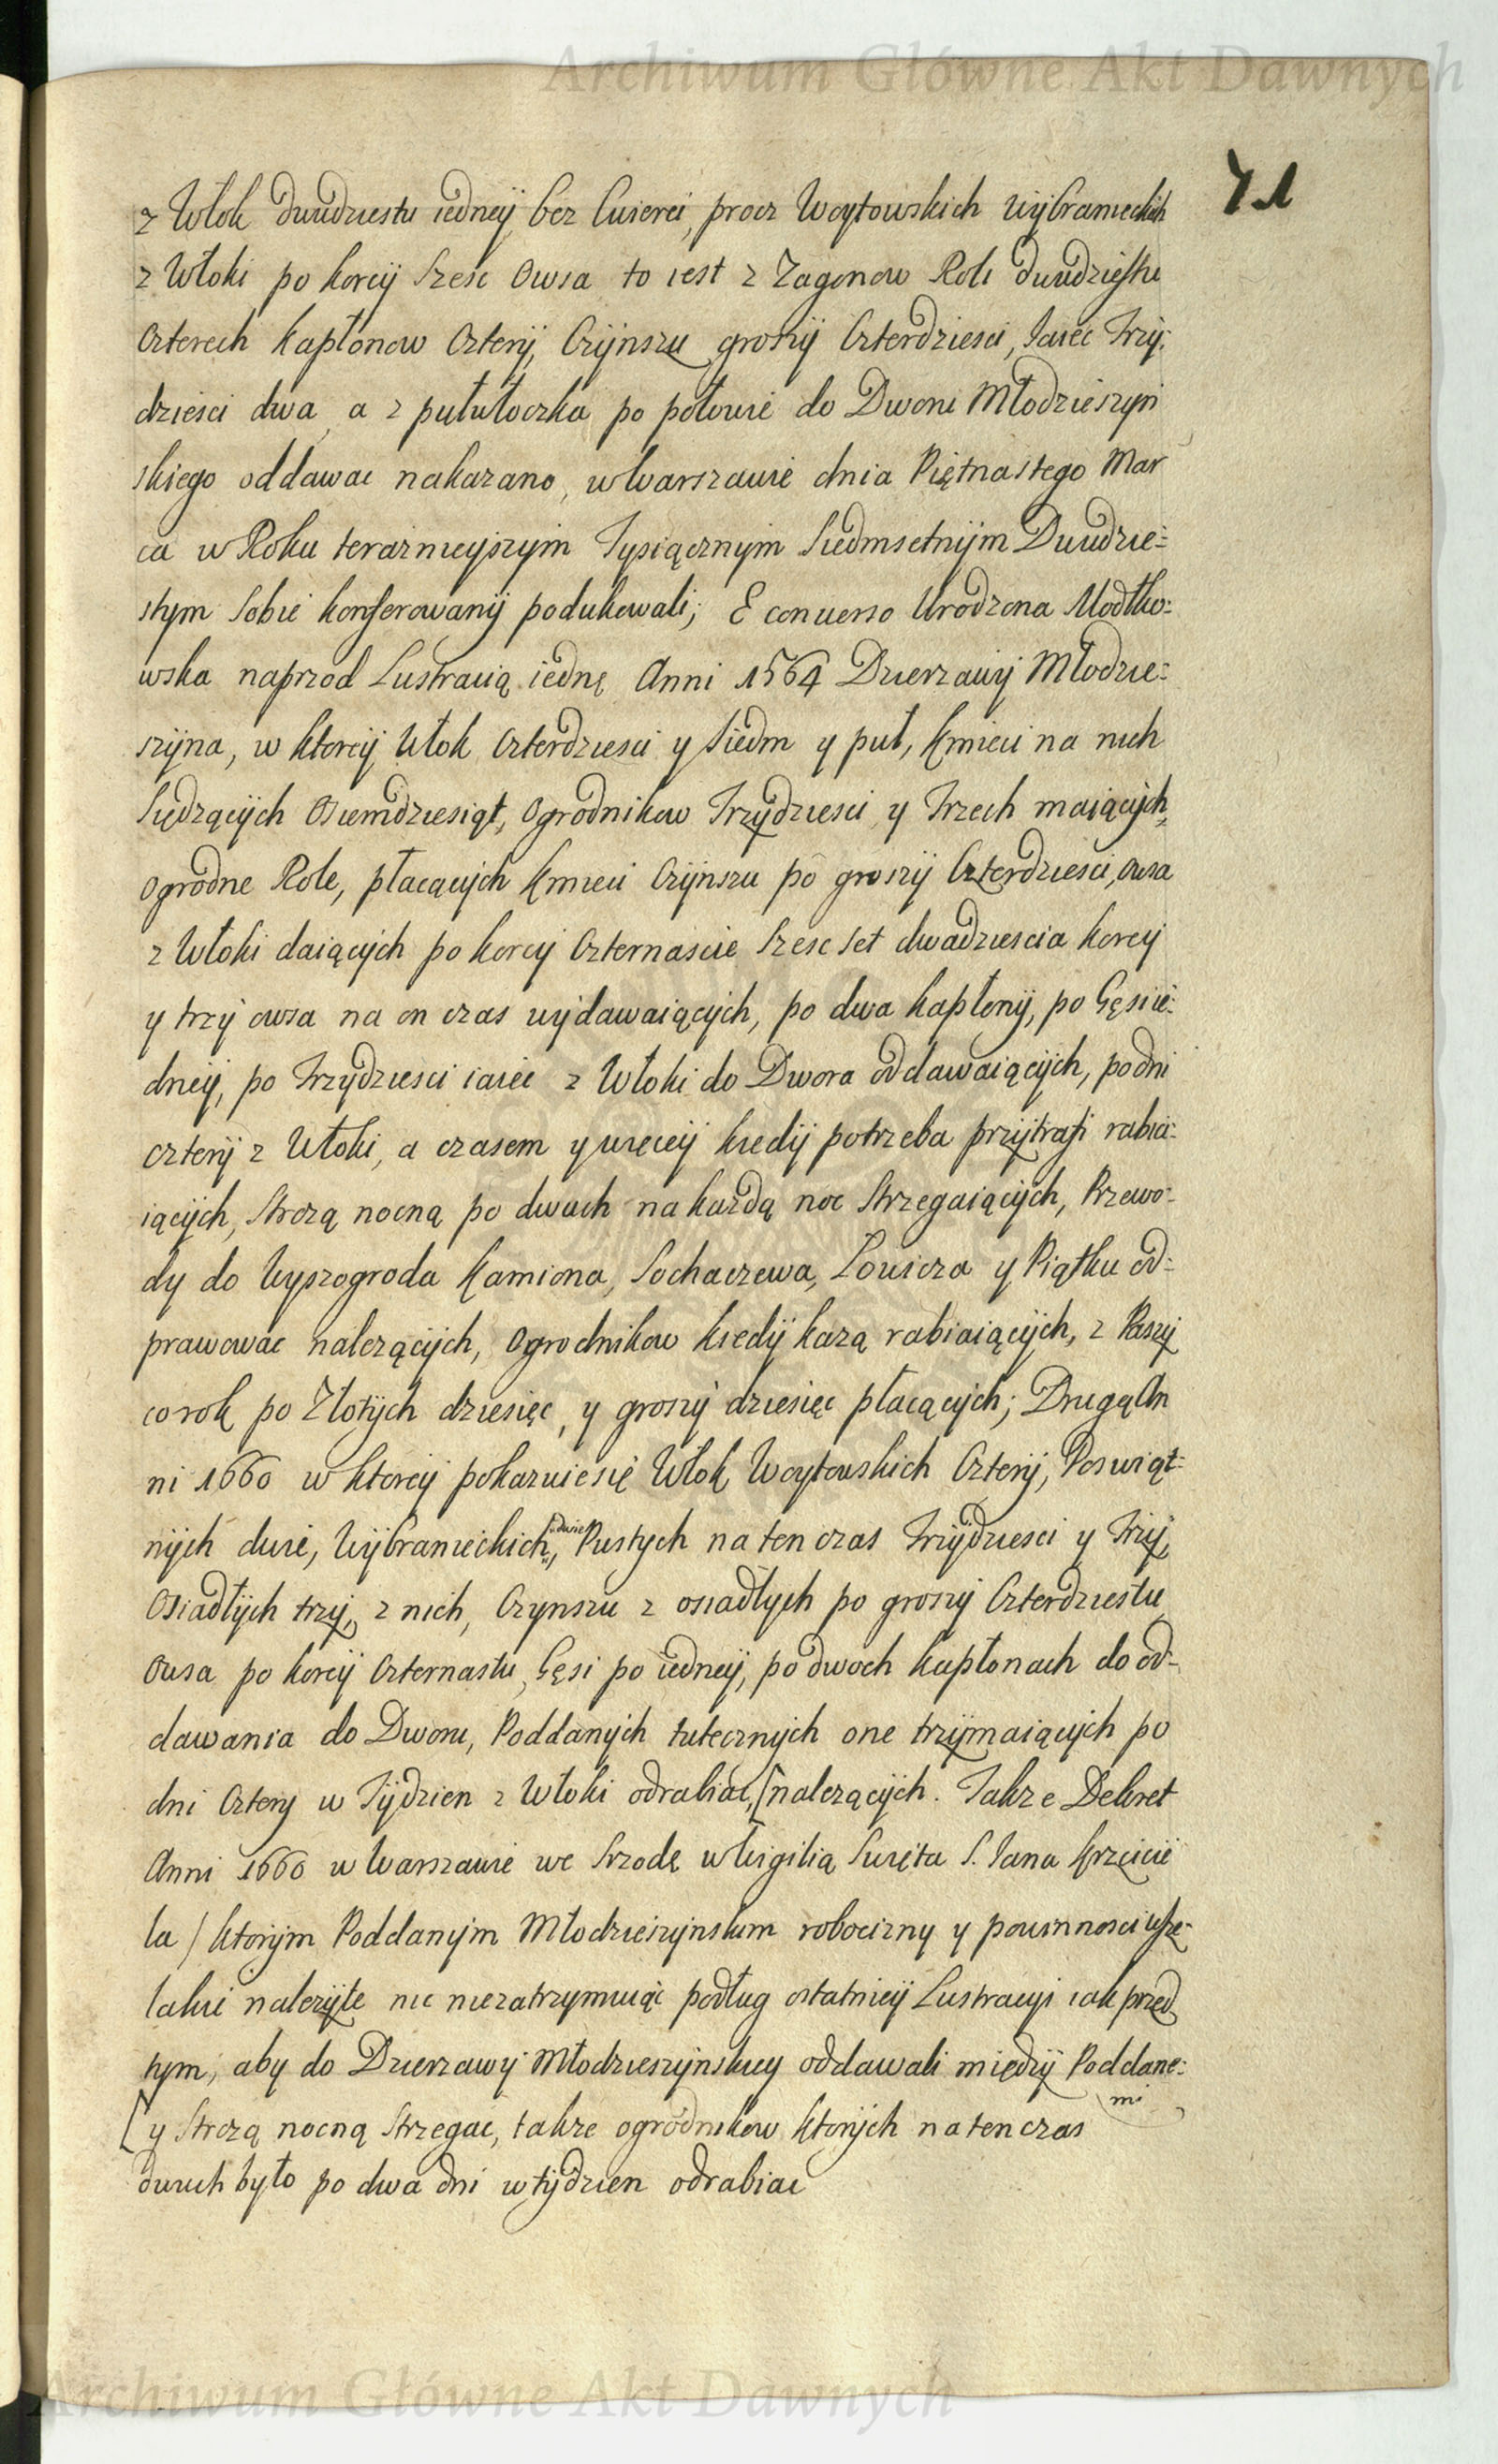 Archiwum Główne Akt Dawnych
71
z Włok dwudziestu iedney bez Cwierci, procz Woytowskich Wybranieckich
z Włoki po korcy Szesc Owsa to iest z Zagonow Roli dwudziestu
Czterech Kapłonow Cztery, Czynszu groszy Czterdziesci, Iaiec Trzy:
dziesci dwa, a z pułwłoczka po połowie do Dworu Młodzieszyn
skiego oddawac nakazano, w Warszawie dnia Piętnastego Mar
ca w Roku teraznieyszym Tysiącznym Siedmsetnym Dwudzie:
stym Sobie konferowany podukowali; E conuerso Urodzona Modłko:
wska naprzod Lustracią iednę Anni 1564 Dzierzawy Młodzie:
szyna, w ktorey Włok Czterdziesci y Siedm y puł, Kmieci na nich
Siędzących Osiemdziesiąt, Ogrodnikow Trzydziesci y Trzech maiących
ogrodne Role, płacących Kmieci Czynszu po groszy Czterdziesci, owsa
z Włoki daiących po korcy Czternascie Szesc set dwadziescia korcy
y trzy owsa na on czas wydawaiących, po dwa kapłony, po Gęsi ie:
dney, po Trzydziesci iaiec z Włoki do Dwora oddawaiących, po dni
cztery z Włoki, a czasem y więcey kiedy potrzeba przytrafi rabia:
iących, Strozą nocną po dwuch na kazdą noc Strzegaiących, Przewo:
dy do Wyszogroda Kamiona, Sochaczewa, Łowicza y Piątku od:
prawowac nalezących, Ogrodnikow kiedy kazą rabiaiących, z Paszy
co rok po Złotych dziesięc, y groszy dziesięc płacących; Drugą An
ni 1660 w ktorey pokazuie się Włok Woytowskich Cztery, Poswiąt:
nych dwie, Wybranieckich dwie, Pustych na ten czas Trzydziesci y Trzy,
Osiadłych trzy, z nich, Czynszu z osiadłych po groszy Czterdziestu
Owsa po korcy Czternastu, Gęsi po iedney, po dwoch kapłonach do od:
dawania do Dworu, Poddanych tutecznych one trzymaiących po
dni Cztery w Tydzien z Włoki odrabiac, [nalezących. Takze Dekret
Anni 1660 w Warszawie we Srzodę w Wigilią Swięta S. Iana Krzcicie
la / ktorym Poddanym Młodzieszynskim robocizny y powinnosci wsze:
lakie nalezyte nic niezatrzymuiąc podług ostatniey Lustracyi iak przed
tym, aby do Dzierzawy Młodzieszynskiey oddawali między Poddane:
mi
[y Strozą nocną Strzegac, takze ogrodnikow ktorych na ten czas
dwuch było po dwa dni w tydzien odrabiac
Archiwum Główne Akt Dawnych